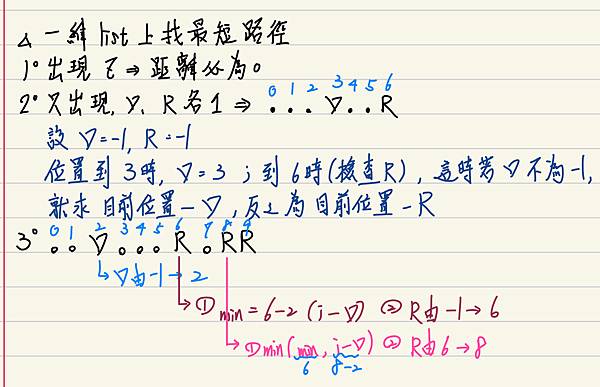 △ 一維 list 上找最短路徑
1° 出現 Z ⇒ 距離必為 0
0 1 2 3 4 5 6
2° 只出現 D、R 各 1 ⇒ . . . D . . R
設 D=-1, R=-1
位置到 3 時, D=3 ; 到 6 時(檢查R), 這時若 D 不為 -1,
就求 目前位置 - D, 反之為 目前位置 - R
0 1 2 3 4 5 6 7 8 9
3° . . D . . . R . R R
↳ D由 -1 → 2
↳ ① min = 6-2 (i-D) ② R由 -1 → 6
↳ ① min(min, i-D) ② R由 6 → 8
6 8-2